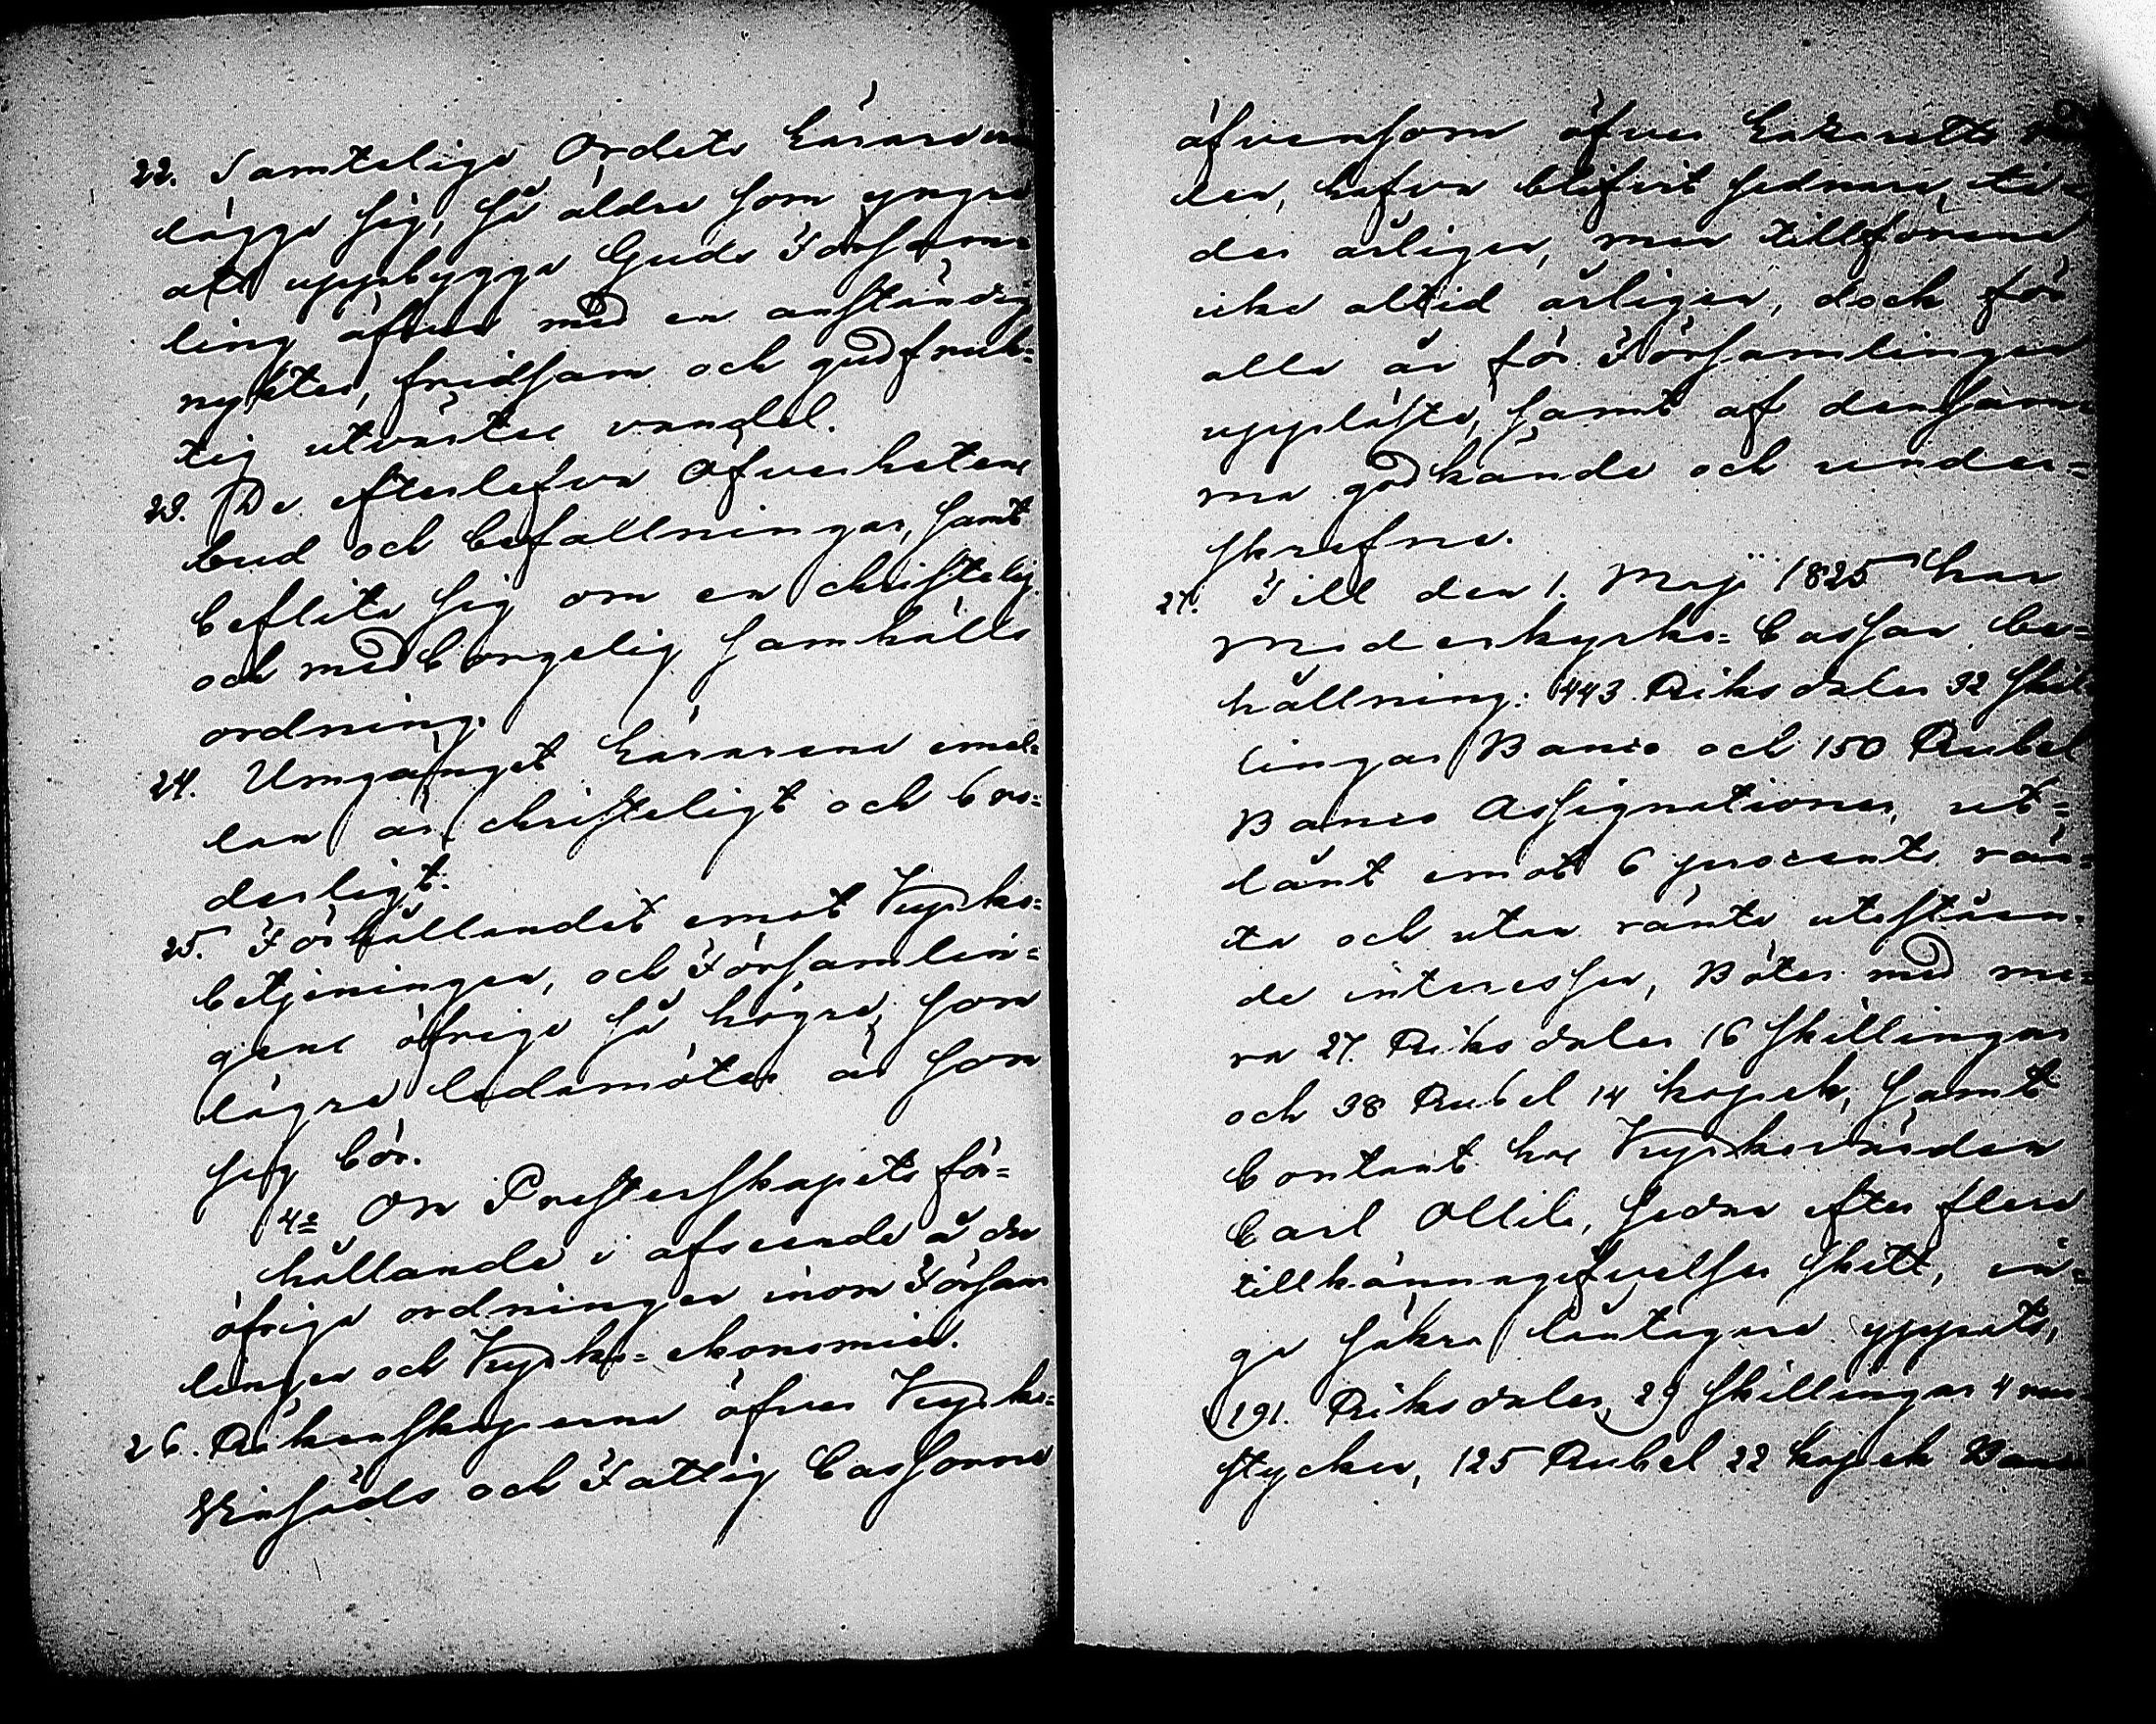 22. Samtelige Ordets Lärare vin
lägga sig, så äldre som yngre
att uppbygga Guds Försam-
ling äfven med en anståndig
nykter, fridsam och gudfruk-
tig utvärtes vandel.
23. De efterlefva Öfverhetens
bud och befallningar, samt
beflita sig om en christelig
och medborgelig samhälls
ordning.
24. Umgänget Lärarena emel-
lan är christeligt och bro-
derligt.
25. Förhållandet emot Kyrko-
betjeningen, och Församlin-
gens öfriga så högre, som
lägre ledamöter är som
sig bör.
4o Om Presterskapets för-
hållande i afseende å de
öfriga ordningar inom Försam
lingen och Kyrko-ekonomien.
26. Räkenskaperna öfver Kyrko-
Kinsäds och Fattig Cassorna
äfvensom öfver Lazaretts
len, hafva blifvit sednare ti-
der årligen, men tillförene
icke altid årligen, dock för
alla år för Församlingen
uppläste, samt af densam-
ma godkände och under-
skrefne.
27. Till den 1. Maji 1825 har
Moderkyrko-Cassan be-
hållning: 443 Riksdaler 32 skil-
lingar Banco och 150 Rubel
Banco Assignationer, ut-
lånt emot 6 procents rän-
ta och utan ränta uteståen-
de interessen, Böter med me-
ra 27. Riksdaler 16 skillingar
och 38 Rubel 14 kopek, samt
Contant hos Kyrkovärden
Carl Ollila, sedan efter flere
tillkännagifvelser skett, in-
ga säkra låntagare yppats,
191. Riksdaler, 29 skillingar 4 run
stycken, 125 Rubel 22 kopek Banco